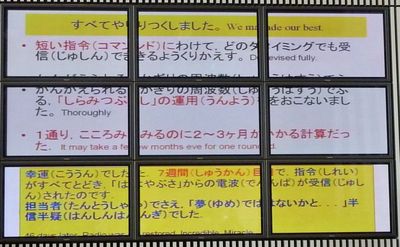 すべてやりつくしました。We made our best.
• 短い指令(コマンド)にわけて、どのタイミングでも受
信(じゅしん)できるようくりかえす。 Devised fully.
かんがえられるかぎりの周波数(しゅうはすう)でふ
る、「しらみつぶし」の運用(うんよう)をおこないまし
た。 Thoroughly
• 1通り、こころみてみるのに2~3ヶ月がかかる計算だっ
た。 It may take a few months eve for one round.
幸運(こううん)でした。7週間(しゅうかん)目で、指令(しれい)
がすべてとどき、「はやぶさ」からの電波(でんぱ)が受信(じゅし
ん)されたのです。
担当者(たんとうしゃ)でさえ、「夢(ゆめ)ではないかと...」半
信半疑(はんしんはんぎ)でした.
46 days later, Radio was restored. Incredible, Miracle